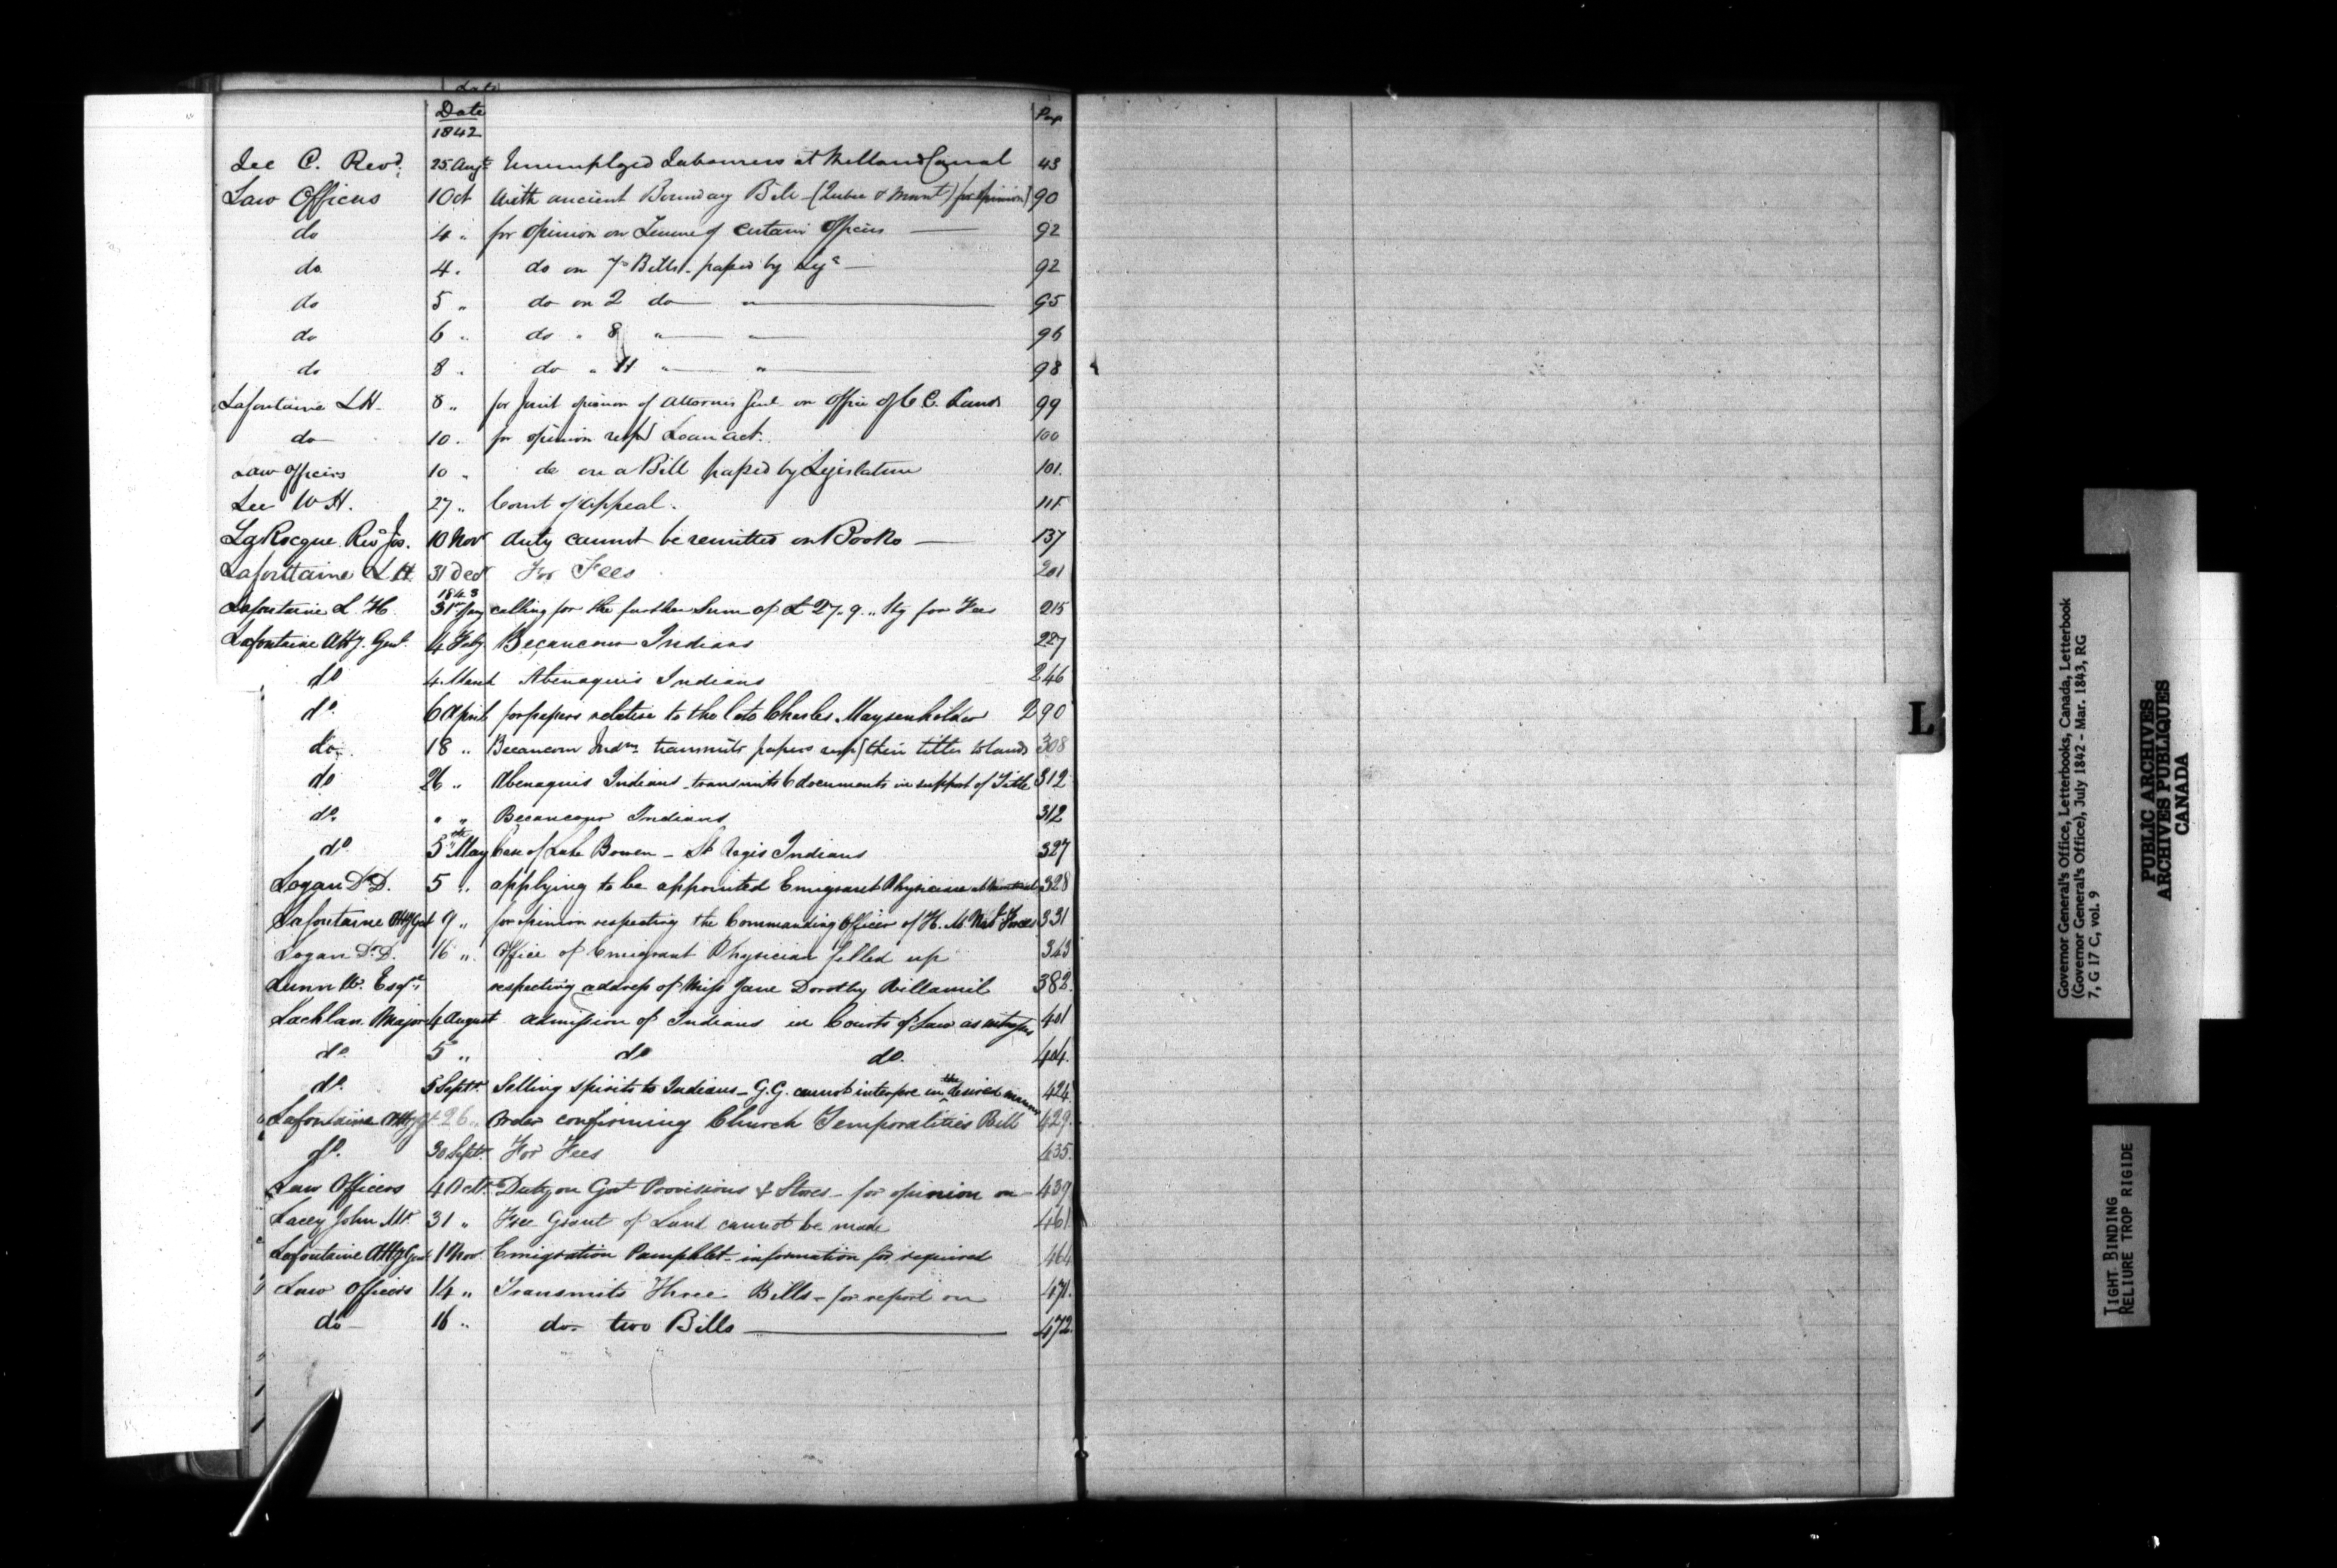 Date
Date Page
1842
Lee C. Revd. 25 Augt Unemployed Labourers at Welland Canal 43
Law Officers 1 Oct With ancient Boundary Bill (Quebec & Mont) for opinion 90
do 4 " for opinion on Tenure of certain Officers — 92
do 4 " do on 7 Bills passed by Legre — 92
do 5 " do on 2 do — " — 95
do 6 " do " 8 " — " — 96
do 8 " do " 11 " — " — 98
Lafontaine L H. 8 " for Joint opinion of Attorneis Genl on Office of C. C. Lands 99
do 10 " for opinion respg Loan act. 100
Law Officers 10 " do on a Bill passed by Legislature 101.
Lee W H. 27 " Court of Appeal. 115
LaRocque Revd Jos. 10 Novr duty cannot be remitted on Books — 137
Lafontaine L H. 31 Decr For Fees 201
1843
Lafontaine L. H. 31st Jany calling for the further Sum of £27.. 9.. Stg for Fees 215
Lafontaine Atty. Genl. 4 Feby Becancour Indians 227
do 4 March Abenaquis Indians 246
do. 6 April for papers relative to the late Charles Maysenholder 290
do. 18 " Becancour Indns. transmits papers respg their titles to lands 308
do 26 " Abenaquis Indians transmits 6 documents in support of Title 312
do. " " Becancour Indians 312
do 5th May Case of Luke Bowen — St Regis Indians 327
Logan Dr D. 5 " applying to be appointed Emigrant Physician at Montreal 328
Lafontaine Atty Genl 9 " for opinion respecting the Commanding Officer of H. M. Forces 331
Logan Dr D. 16 " Office of Emigrant Physician filled up 343
Lunn W. Esqre. respecting address of Miss Jane Dorothy Villamil 382.
Lachlan Major 4 August admission of Indians in Courts of Law as witnesses 401
do. 5 " do do. 404.
do. 5 Septr. Selling spirits to Indians — G.G. cannot interfere in the desired manner 424
Lafontaine Atty Gl 26 " Order confirming Church Temporalities Bill 429.
do. 30 Septr. For Fees 435.
Law Officers 4 Octr. Duty on Govt Provisions & Stores — for opinion on — 439
Lacey John Mr. 31 " Free Grant of Land cannot be made 461
Lafontaine Atty Genl 1 Nov. Emigration Pamphlet — information for required 464
Law Officers 14 " Transmits Three Bills — for report on 471.
do — 16 " do. two Bills — 472.
L
Governor General's Office, Letterbooks, Canada, Letterbook
(Governor General's Office), July 1842 - Mar. 1843, RG
7, G 17 C, vol. 9
PUBLIC ARCHIVES
ARCHIVES PUBLIQUES
CANADA
TIGHT BINDING
RELIURE TROP RIGIDE